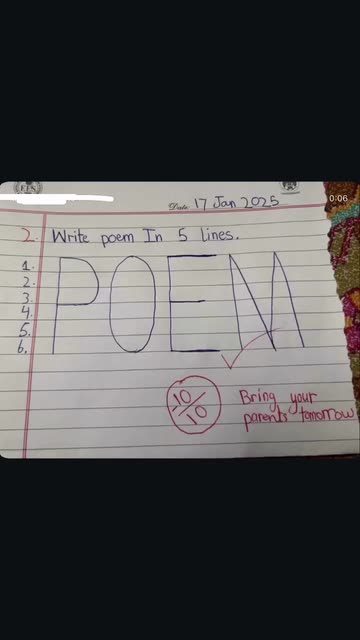 FIS
Date 17 Jan 2025
0:06
2. Write poem In 5 lines.
1.
2.
3.
4.
5.
6.
POEM
10/10
Bring your
parents tomorrow